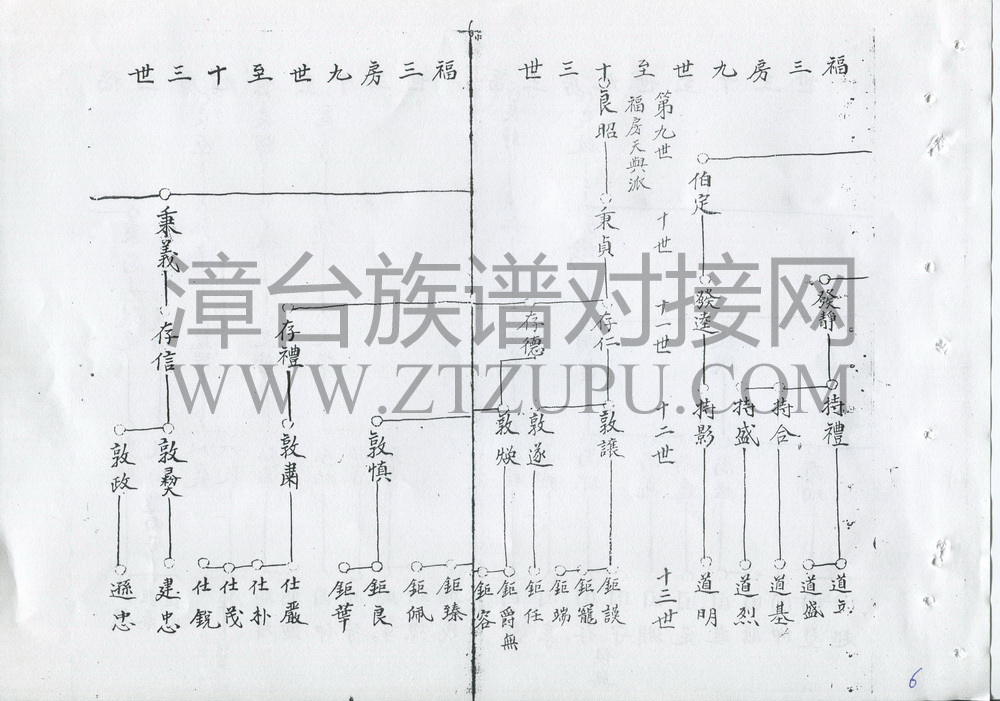 福三房九世至十三世
伯定
發靜
發逵
持禮
持合
持盛
持影
道盛
道基
道烈
道明
第九世
福房天與派
十世
十一世
十二世
十三世
良昭
秉貞
存仁
存德
敦讓
敦遂
敦煥
鉅諛
鉅寵
鉅瑞
鉅任
鉅爵無
鉅容
福三房九世至十三世
秉義
存禮
存信
敦慎
敦肅
敦彛
敦政
鉅臻
鉅佩
鉅良
鉅華
仕嚴
仕朴
仕茂
仕銳
建忠
遜忠
漳台族谱对接网
WWW.ZTZUPU.COM
6